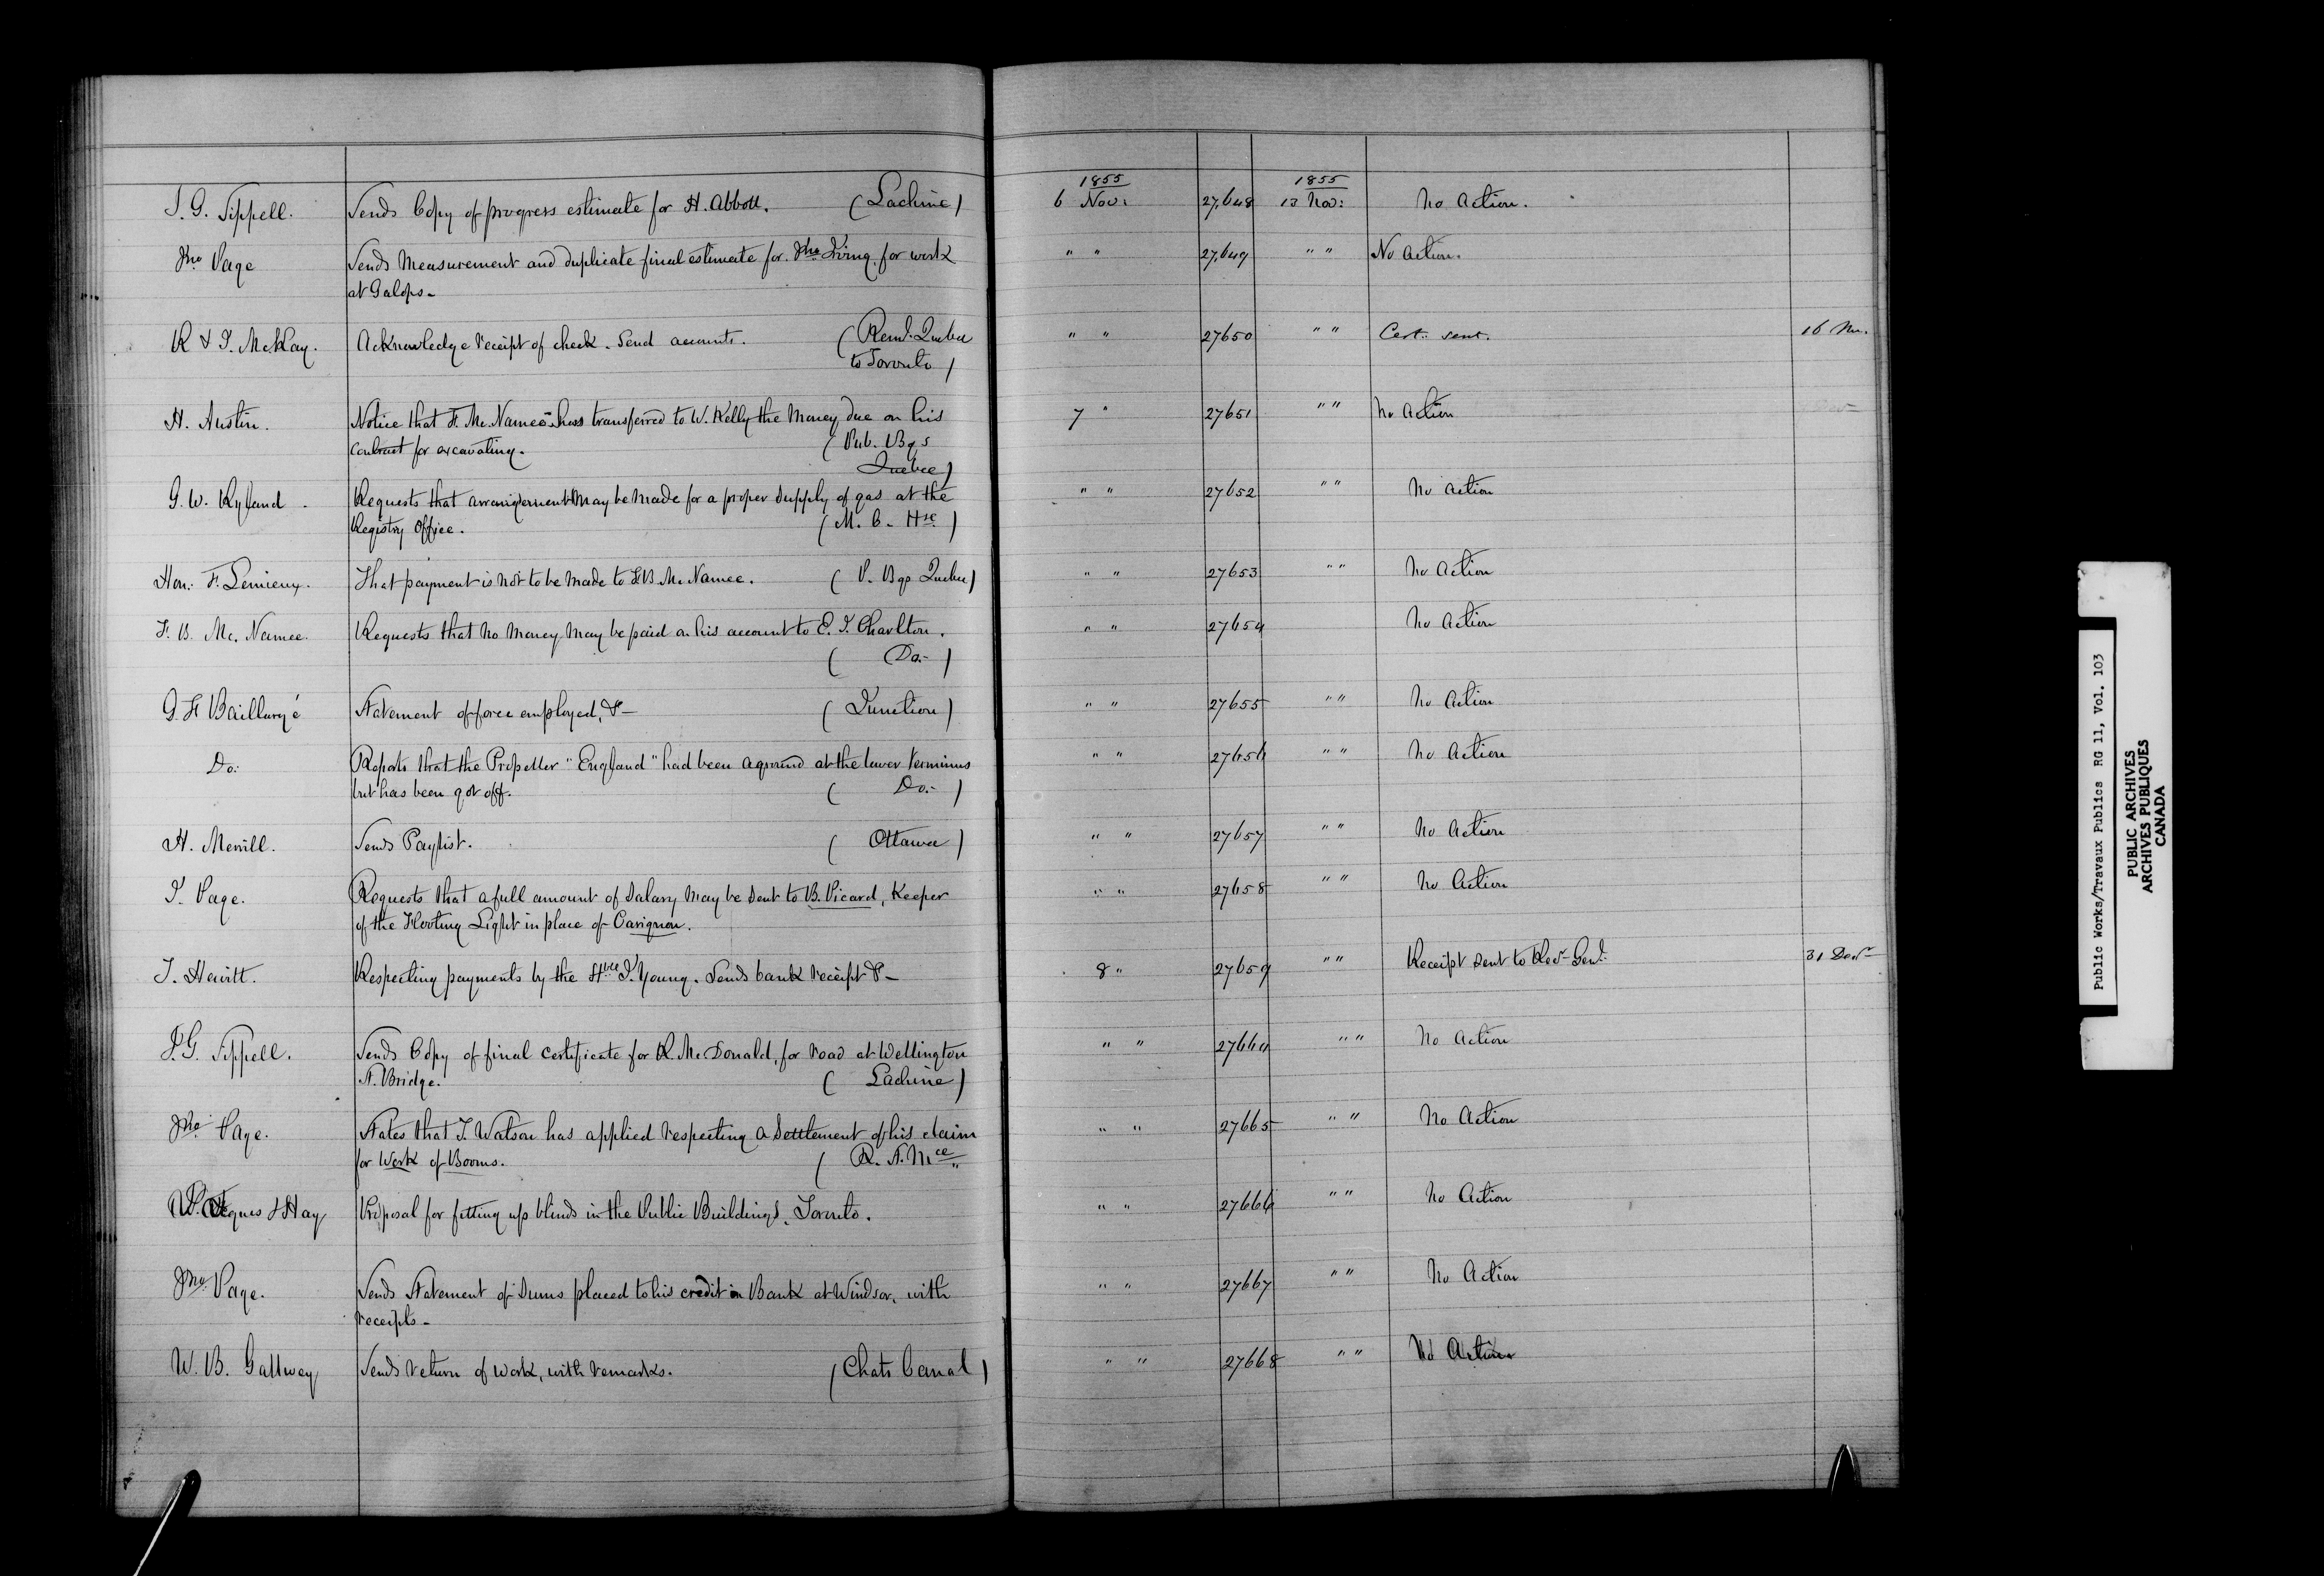 1855 1855
J. G. Sippell. Sends Copy of progress estimate for H. Abbott. (Lachine) 6 Nov: 27,648 13 Nov: No Action.
Jno Page Sends Measurement and duplicate final estimate for Jno King, for work " " 27,649 " " No Action.
at Galops.
R & J. McKay. Acknowledge receipt of check. Send accounts. (Reml. Quebec " " 27650 " " Cert: sent. 16 Nov.
to Toronto)
H. Austin. Notice that F. McNamee has transferred to W. Kelly the Money due on his 7 " 27651 " " No Action
contract for excavating. (Pub. Bgs
Quebec)
G. W. Ryland. Requests that arrangement may be made for a proper supply of gas at the " " 27652 " " No Action
Registry Office. (M. C. Hse)
Hon: F. Lemieux. That payment is not to be made to F.B. McNamee. (P. Bgs Quebec) " " 27653 " " No Action
F. B. McNamee. Requests that no money may be paid on his account to E. J. Charlton. " " 27654 No Action
(Do:-)
G. F Baillargé Statement of force employed, &- (Junction) " " 27655 " " No Action
Do:- Reports that the Propeller "England" had been aground at the lower terminus " " 27656 " " No Action
but has been got off. (Do:-)
H. Merrill. Sends Paylist. (Ottawa) " " 27657 " " No Action
J. Page. Requests that a full amount of Salary may be sent to B. Picard, Keeper " " 27658 " " No Action
of the Floating Light in place of Carignon.
J. Hewitt. Respecting payments by the Hble J. Young. Sends bank receipt &- 8 " 27659 " " Receipt sent to Recr Genl. 31 Decr
J. G. Sippell. Sends Copy of final certificate for R. McDonald, for road at Wellington " " 27664 " " No Action
St. Bridge. (Lachine)
Jno Page. States that J. Watson has applied respecting a settlement of his claim " " 27665 " " No Action
for Work of Booms. (R. St. Mce)
Jacques & Hay Proposal for fitting up blinds in the Public Buildings, Toronto. " " 27666 " " No Action
Jno Page. Sends Statement of sums placed to his credit in Bank at Windsor, with " " 27667 " " No Action
receipts-
W. B. Gallwey Sends return of work, with remarks. (Chats Canal) " " 27668 " " No Action
Public Works/Travaux Publics RG 11, Vol. 103
PUBLIC ARCHIVES
ARCHIVES PUBLIQUES
CANADA